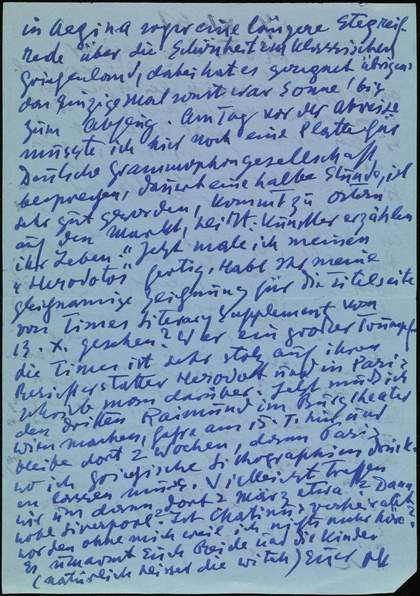 in Aegina sogar eine längere Stegreif-
rede über die Schönheit im klassischen
Griechenland, dabei hat es geregnet übrigens
das einzige Mal sonst war Sonne bis
zum Abflug. Am Tag vor der Abreise
musste ich hier noch eine Platte für
Deutsche Grammophongesellschaft
besprechen, dauert eine halbe Stunde, ist
sehr gut geworden, kommt zu Ostern
auf den Markt, heisst: Künstler erzählen
ihr Leben." Jetzt male ich meinen
"Herodotos" fertig. Habt Ihr meine
gleichnamige Zeichnung für die Titelseite
von Times Literary Supplement vom
13. X. gesehen? War ein großer Triumpf
die Times ist sehr stolz auf ihren
Berichterstatter Herodott und in Paris
schrieb man darüber. Jetzt muß ich
den dritten Raimund im Burgtheater
Wien machen, fahre am 15. I. hin und
bleibe dort 2 Wochen, dann Paris
wo ich griechische Lithographien drucken
lassen muss. Vielleicht treffen
wir uns dann dort 2 März etwa? Dann
Liverpool. Ist
worden ohne mich weil ich nichts mehr höre?
Es umarmt Euch Beide und die Kinder
(natürlich die witch) Euer OK